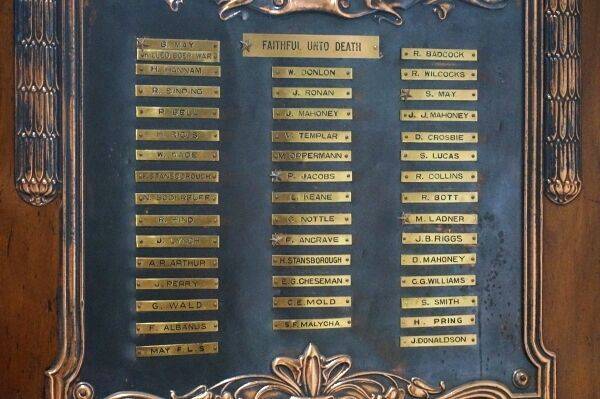 G. MAY
KILLED BOER WAR
H. HANNAM
R. BINDING
P. BELL
H. RIGUS
W. PAGE
F. STANSBOROUGH
N. BODERRUFF
R. HIND
J. LYNCH
A.R. ARTHUR
J. PERRY
G. WALD
F. ALBANUS
MAY F.L.S
FAITHFUL UNTO DEATH
W. DONLON
J. RONAN
J. MAHONEY
TEMPLAR
M. OPPERMANN
P. JACOBS
KEANE
NOTTLE
F. ANGRAVE
H. STANSBOROUGH
E.G. CHESEMAN
C.E. MOLD
S.F. MALYCHA
R. BADCOCK
R. WILCOCKS
S. MAY
J. J. MAHONEY
D. CROSBIE
S. LUCAS
R. COLLINS
R. BOTT
M. LADNER
J.B. RIGGS
D. MAHONEY
C.G. WILLIAMS
S. SMITH
H. PRING
J. DONALDSON